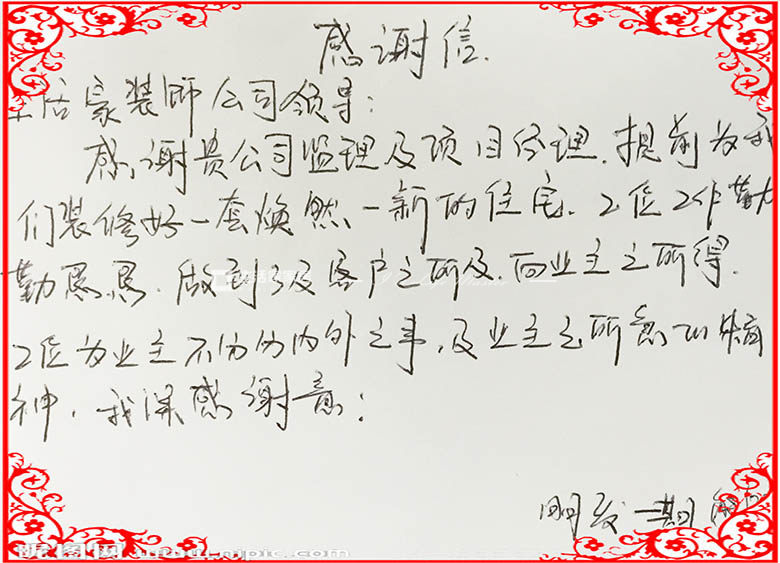 感谢信.
生活家装师公司领导:
感谢贵公司监理及项目经理.提前为我
们装修好一套焕然一新的住宅.2位工作勤
勤恳恳.做到了及客户之所及.向业主之所得.
2位为业主不分份内外之事,及业主之所急的精
神.我深感谢意:
明发一期
昵图网 www.nipic.com